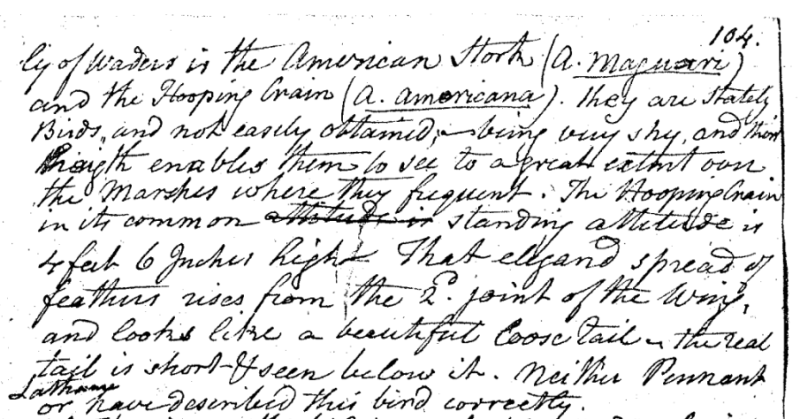 104.
ly of Waders is the American Stork (A. Maguari)
and the Hooping Crain (A. americana). they are stately
Birds, and not easily obtained, being very shy, and their
heigth enables them to see to a great extent over
the Marshes where they frequent. The Hooping Crain
in its common attitude is standing attitude is
4 feet 6 Inches high. That elegand spread of
feathers rises from the 2d. joint of the Wing,
and looks like a beautiful loose tail - the real
tail is short & seen below it. Neither Pennant
or Lathame have described this bird correctly.